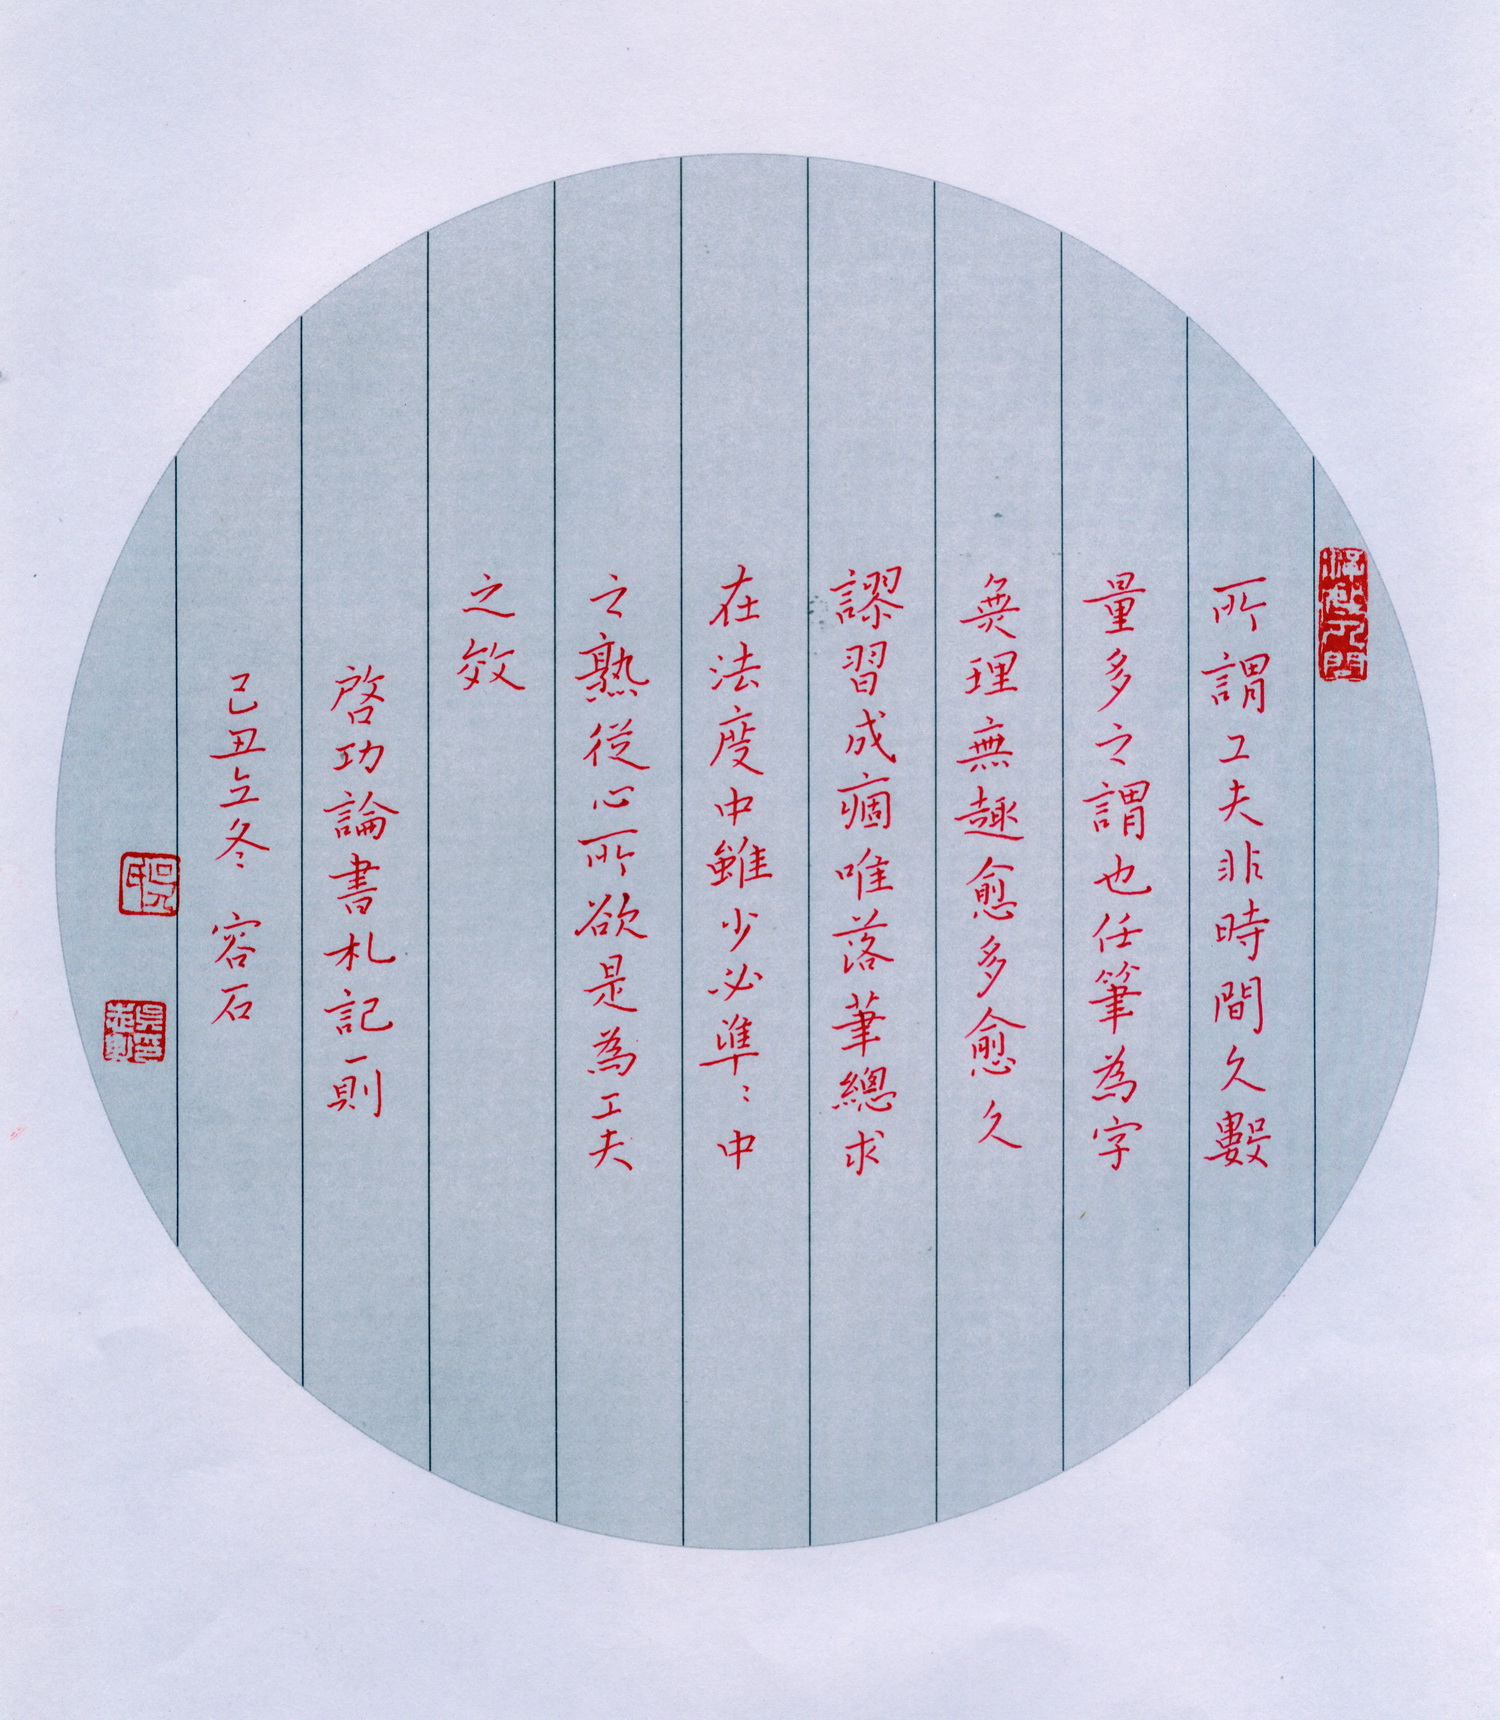 所謂工夫非時間久數
量多之謂也任筆為字
無理無趣愈多愈久
謬習成痼唯落筆總求
在法度中雖少必準〻中
之熟從心所欲是為工夫
之效
啓功論書札記一則
己丑立冬 容石